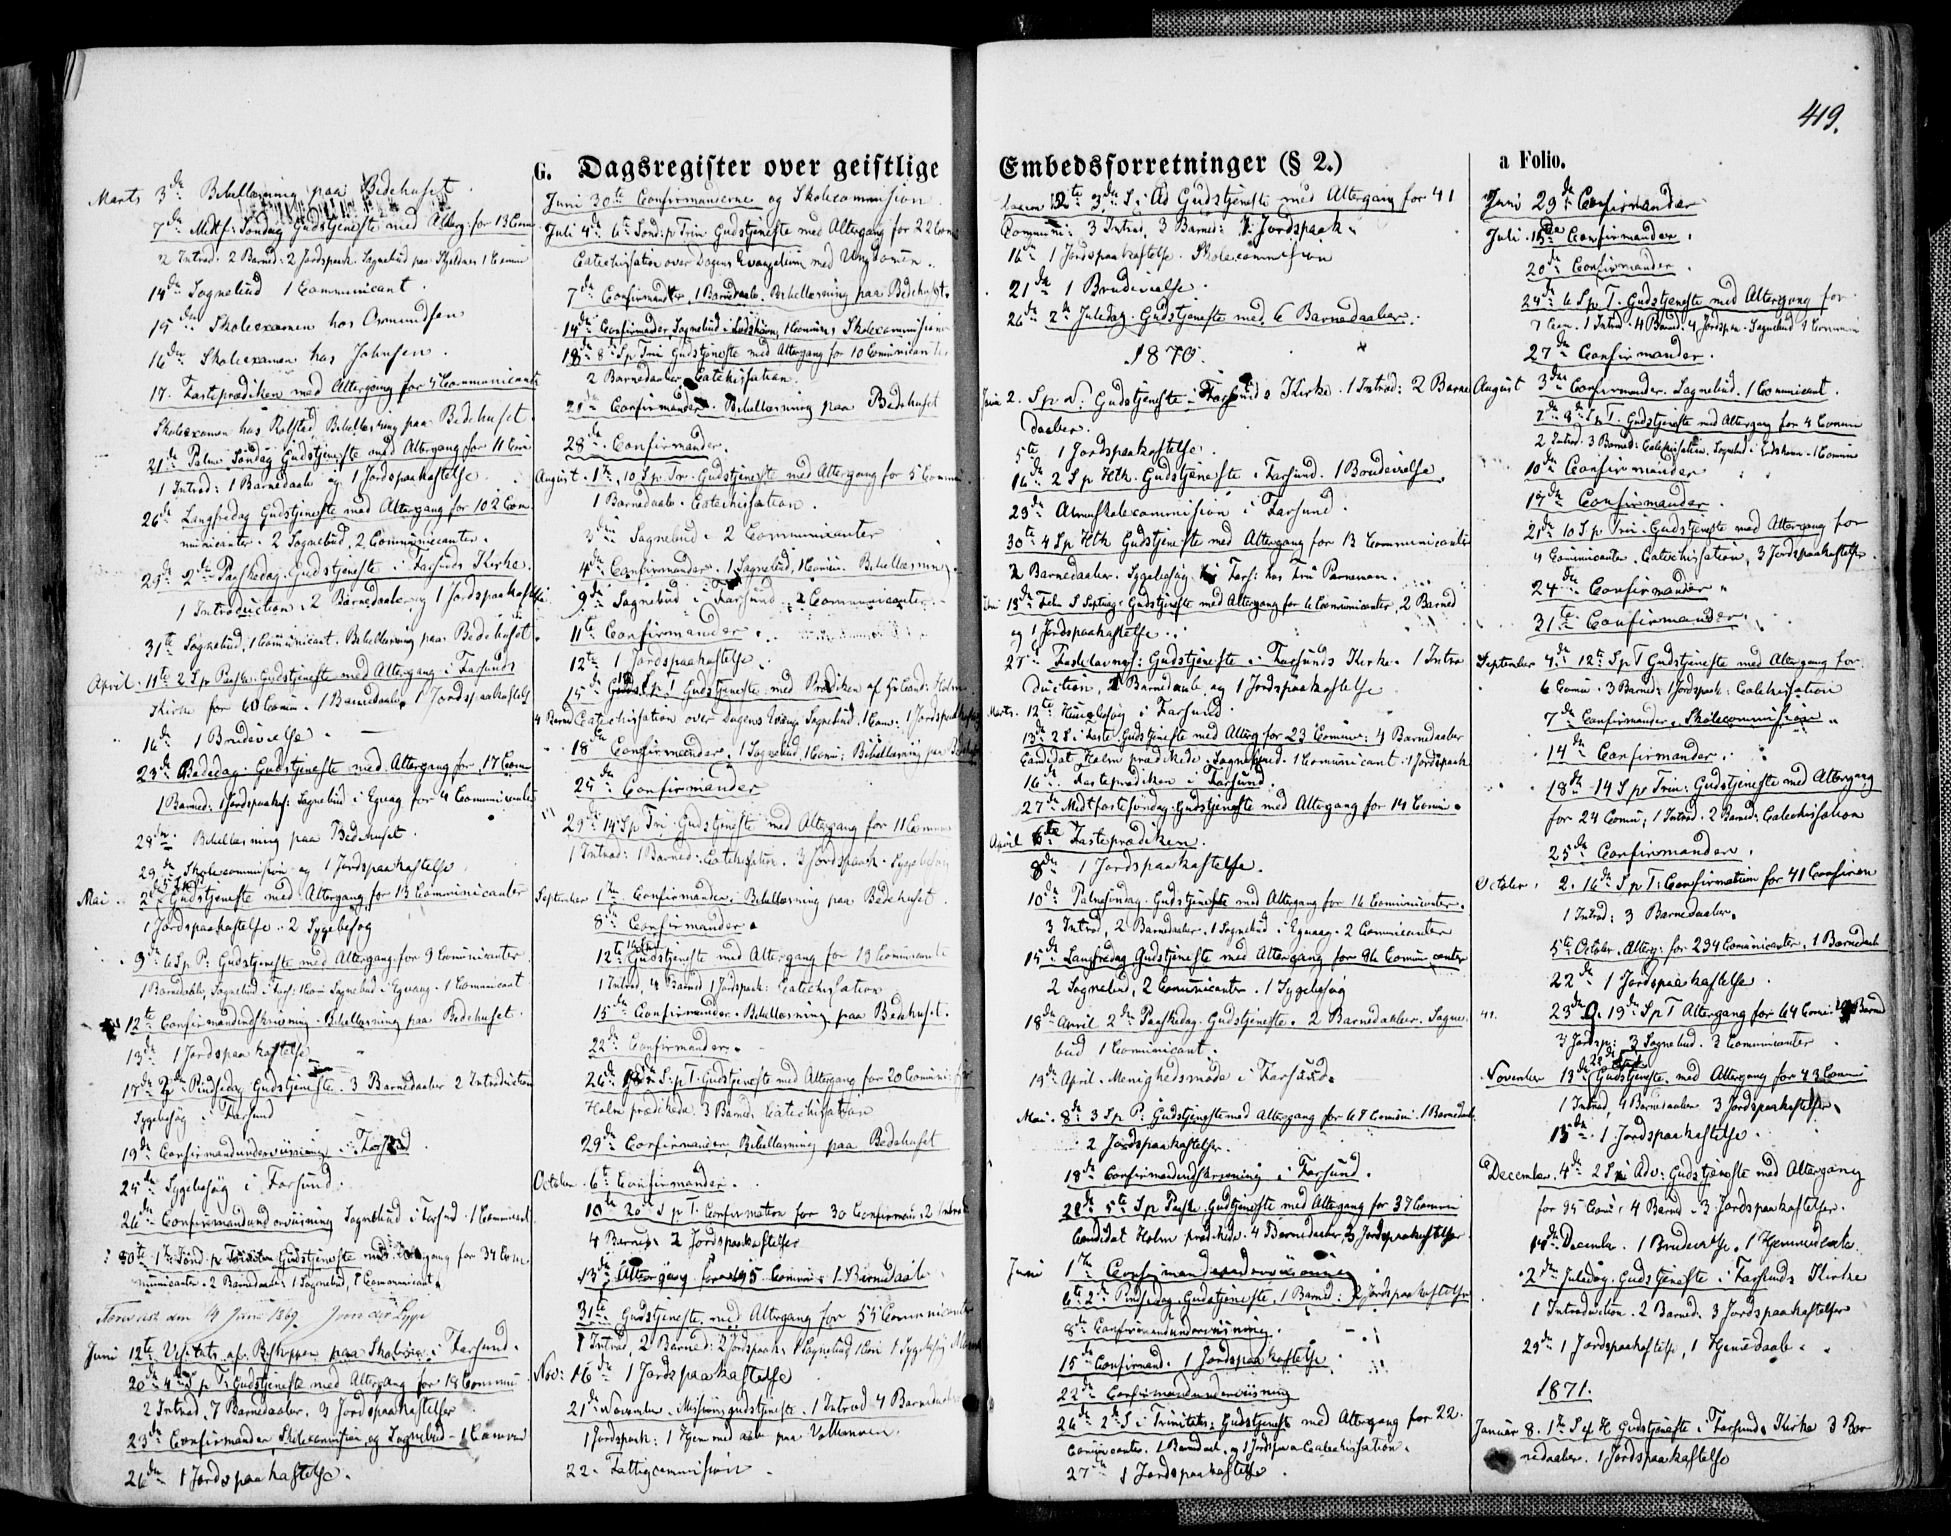 419.
G. Dagsregister over geistlige Embedsforretninger (§ 2.) a Folio.
Marts 3de Bibellæsning paa Bedehuset.
7de Midtf: Søndag Gudstjeneste med Alterg. for 13 Comm
2 Introd. 2 Barned: 2 Jordspaak. Sognebud paa 1 Commu
14de Sognebud 1 Communicant.
15de Skoleexamen hos Osmundsen
16de Skoleexamen hos Johnsen.
17. Fasteprædiken med Altergang for 4 Communicanter
Skoleexamen hos Rolfsted. Bibellæsning paa Bedehuset.
21de Palme Søndag Gudstjeneste med Altergang for 11 Com
1 Introd: 1 Barnedaab og 1 Jordspaakastelse
26de Langfredag Gudstjeneste med Altergang for 102 Com
municanter. 2 Sognebud, 2 Communicanter.
29de 2den Paaskedag. Gudstjeneste i Farsunds Kirke.
1 Introduction. 2 Barnedaaber og 1 Jordspaakastelse
31te Sognebud, 1 Communicant. Bibellæsning paa Bedehuset.
April. 11te 2 S p Paaske. Gudstjeneste med Altergang i Farsunds
Kirke for 60 Comm. 1 Barnedaab, 1 Jordspaakastelse
16de 1 Brudevielse.
23de Bededag. Gudstjeneste med Altergang for 17 Comm
1 Barned: 1 Jordspaak: Sognebud i Eguaag for 4 Communicanter
28de Bibellæsning paa Bedehuset.
29de Skolecommission og 1 Jordspaakastelse
Mai 2den Gudstjeneste med Altergang for 13 Communicanter
1 Jordspaakastelse. 2 Sygebesøg
9de 6 S p P: Gudstjeneste med Altergang for 9 Communicanter
1 Barnedaab, Sognebud i Fars: 1 Com Sognebud i Eguaag. 1 Communicant
12te Confirmandindskrivning. Bibellæsning paa Bedehuset.
13de 1 Jordspaakastelse
17de 2den Pindsedag Gudstjeneste. 3 Barnedaaber 2 Introduction
Sygebesøg i Farsund
19de Confirmandundervisning i Farsund.
25de Sygebesøg i Farsund.
26de Confirmandundervisning Sognebud i Farsund. 1 Communicant
30te 1te Sønd. p Trinitatis Gudstjeneste med Altergang for 34 Com
municanter. 2 Barnedaaber. 1 Sognebud, 1 Communicant.
den 14 Juni 1869
Juni 12te Visitats af Biskoppen paa Skolerne i Farsund.
20de 4de S p T: Gudstjeneste med Altergang for 18 Commu
2 Introd, 7 Barnedaaber. 3 Jordspaakastelser
23de Confirmander, Skolecommission og Sognebud - 1 Commu
26de 1 Jordspaakastelse.
Juni 30te Confirmanderne og Skolecommission
Juli 4de 6te Sønd: p Trin Gudstjeneste med Altergang for 22 Com
Catechisation over Dagens Evangelium med Ungdomen.
7de Confirmander, 1 Barnedaab. Bibellæsning paa Bedehuset.
14de Confirmander, Sognebud i 1 Commun. Skolecommission
18de 8de S p Tri Gudstjeneste med Altergang for 10 Communicanter
2 Barnedaaber. Catechisation.
21de Confirmander. Bibellæsning paa Bedehuset
28de Confirmander.
August. 1te 10 S p Tr. Gudstjeneste med Altergang for 5 Commun.
1 Barnedaab. Catechisation.
3die Sognebud. 2 Communicanter
4de Confirmander. 1 Sognebud, 1 Comm. Bibellæsning
9de Sognebud i Farsund 2 Communicanter.
11te Confirmander.
12te 1 Jordspaakastelse.
15de S p T Gudstjeneste med Prædiken af Cand: Holm
4 Barned Catechisation over Dagens Evang Sognebud. 1 Com. 1 Jordspaakastelse
18de Confirmander. 1 Sognebud, 1 Comm: Bibellæsning paa Bedehus
25de Confirmander
29de 14 S p Tri Gudstjeneste med Altergang for 11 Commun
1 Introd: 1 Barned: Catechisation. 3 Jordspaak. Sygebesøg
September 1te Confirmander. Bibellæsning paa Bedehuset.
8de Confirmander.
12te Gudstjeneste med Altergang for 13 Communicante
1 Introd, 4 Barned 1 Jordspaak: Catechisation
15de Confirmander. Bibellæsning paa Bedehuset.
22de Confirmander.
26de S: p T. Gudstjeneste med Altergang for 20 Commun:
Holm prædikede. 3 Barned. Catechisation
29de Confirmander, Bibellæsning paa Bedehuset
October. 6te Confirmander.
10de 20de S p T. Confirmation for 30 Confirman. 2 Introd
4 Barned. 2 Jordspaakastelser
13de Altergang for 95 Commu. 1 Barnedaab
31te Gudstjeneste med Altergang for 55 Communicanter
1 Introd, 2 Barned: 2 Jordspaak. 1 Sognebud 1 Com 1 Sygebesøg
Nov: 16de 1 Jordspaakastelse
21de November. Missionsgudstjeneste. 1 Introd 4 Barnedaaber
1 Jordspaak: 1 Hjemmedaab paa
22. Fattigcommission.
12te 3de S. i Ad Gudstjeneste med Altergang for 41
Communi: 3 Introd, 3 Barned: 1 Jordspaak.
16de 1 Jordspaakastelse. Skolecommission
21de 1 Brudevielse.
26de 2de Juledag. Gudstjeneste med 6 Barnedaaber.
1870.
2. S p N: Gudstjeneste i Farsunds Kirke. 1 Introd: 2 Barne
daaber.
5te 1 Jordspaakastelse.
16de 2 S p Hth Gudstjeneste i Farsund. 1 Brudevielse
29de Almuskolecommission i Farsund.
30te 4 S p Hth Gudstjeneste med Altergang for 13 Communicanter
2 Barnedaaber. Sygebesøg i Fars: hos Fru
13de Febr S Septuag: Gudstjeneste med Altergang for 6 Communicanter, 2 Barned
og 1 Jordspaakastelse.
27de Fastelavns: Gudstjeneste i Farsunds Kirke. 1 Intro
duction, 1 Barnedaab, og 1 Jordspaakastelse
Marts. 12te i Farsund.
13de 2 S i Faste. Gudstjeneste med Alterg for 23 Commun: 4 Barnedaaber
Candidat Holm prædikede. Sognebud. 1 Communicant. 1 Jordspaak
16de Fasteprædiken i Farsund.
27de Midtfastsøndag. Gudstjeneste med Altergang for 14 Comm.
April 6te Fasteprædiken.
8de 1 Jordspaakastelse.
10de Palmesøndag. Gudstjeneste med Altergang for 16 Communicanter.
3 Introd, 2 Barnedaaber. 1 Sognebud i Eguaag. 2 Communicanter
15de Langfredag Gudstjeneste med Altergang for 96 Communicanter
2 Sognebud, 2 Communicanter. 1 Sygebesøg
18de April 2de Paaskedag. Gudstjeneste. 2 Barnedaaber. Sogne
bud 1 Communicant.
19de April. Menighedsmøde i Farsund.
Mai. 8de 3 S p P. Gudstjeneste med Altergang for 68 Commun. 1 Barnedaab
2 Jordspaakastelser.
18de Confirmandindskrivning i Farsund.
22de 5te S p Paaske. Gudstjeneste med Altergang for 37 Commun
Candidat Holm prædikede. 4 Barnedaaber, 3 Jordspaakastelser
Juni 1te Confirmandundervisning
6te 2de Pindsedag. Gudstjeneste, 1 Barned: 2 Jordspaakastelser
8de Confirmandundervisning.
15de Confirmand. 1 Jordspaakastelse
22de Confirmandundervisning
26de 2de S. i Trinitatis: Gudstjeneste med Altergang for 22
Communicanter. 1 Barnedaab. og 1 Jordspaa Catechisation.
27de 1 Jordspaakastelse.
Juni 29de Confirmander
Juli. 13de Confirmander.
20de Confirmander.
24de 6 S p T. Gudstjeneste med Altergang for
7 Com. 1 Introd. 4 Barned. 4 Jordspaa. Sognebud 1 Commun
27de Confirmander.
August 3die Confirmander. Sognebud. 1 Communicant.
7de 8de S p T. Gudstjeneste med Altergang for 4 Commun
2 Introd. 3 Barned: Catechisation. Sognebud i 1 Commun
10de Confirmander
17de Confirmander.
21de 10 S p Tri. Gudstjeneste med Altergang for
4 Communicanter. Catechisation, 3 Jordspaakastelse
24de Confirmander
31te Confirmander.
September 4de 12te S p T Gudstjeneste med Altergang for
6 Commu. 3 Barned: 1 Jordspaak: Catechisation
7de Confirmander. Skolecommission
14de Confirmander.
18de 14 S p Trin: Gudstjeneste med Altergang
for 24 Comm; 1 Introd. 2 Barned: Catechisation
25de Confirmander.
October. 2. 16de S p T: Confirmation for 41 Confirman
1 Introd: 3 Barnedaaber.
5te October. Alterg: for 234 Communicanter, 1 Barnedaab
22de 1 Jordspaakastelse.
23de 19de S p T Altergang for 64 Comm: Barned
3 Jordsp: 3 Sognebud. 3 Communicanter
November 13de Gudstjeneste med Altergang for 43 Commu
1 Introd, 4 Barnedaaber 3 Jordspaakastelser.
15de 1 Jordspaakastelse.
December. 4de 2 S i Adv: Gudstjeneste med Altergang
for 95 Comm. 4 Barned. 3 Jordspaakastelser.
14de Decembr. 1 Brudevielse. 1 Hjemmedaab.
2de Juledag. Gudstjeneste i Farsunds Kirke
1 Introduction. 2 Barned. 3 Jordspaakastelser
29de 1 Jordspaakastelse, 1 Hjemmedaab.
1871.
Januar 8. 1te S ef H Gudstjeneste i Farsunds Kirke 3 Bar
nedaaber. 1 Jordspaakastelse